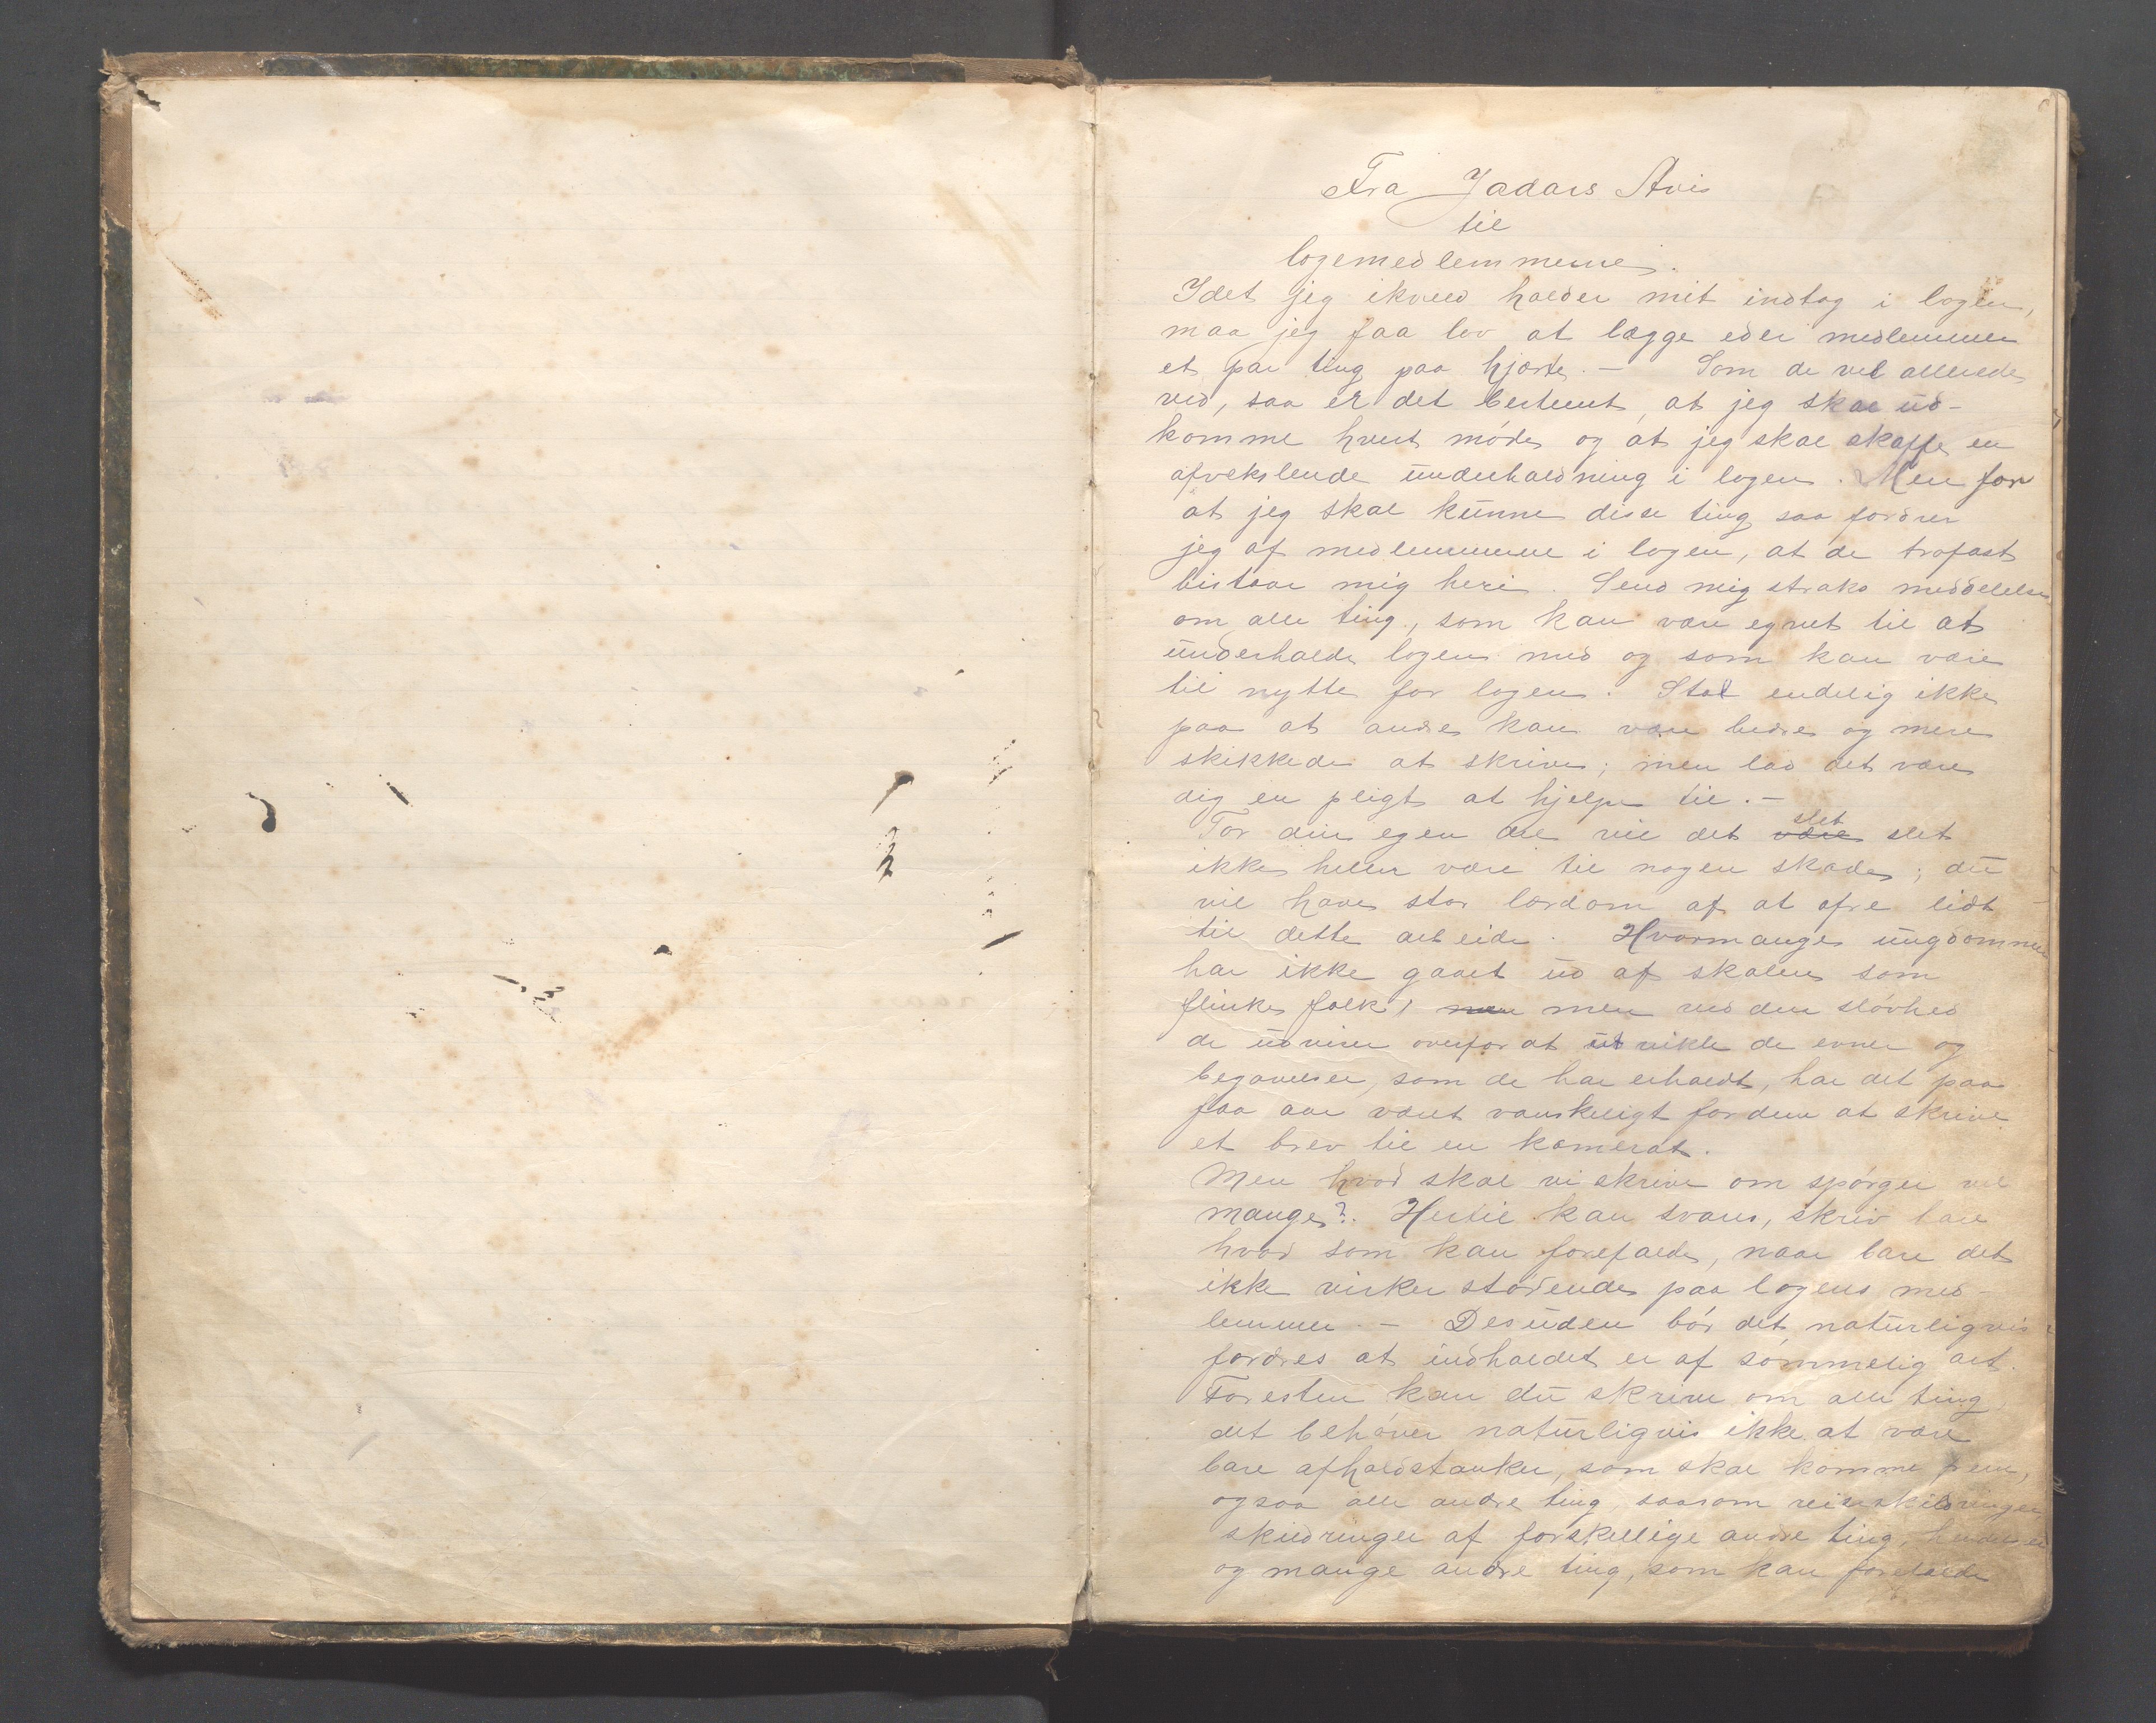 Fra Jadars Avis
til
logemedlemmerne.
Idet jeg ikveld holder mit indtog i logen,
maa jeg faa lov at lægge eder medlemmer
et par ting paa hjærte. — Som de vel allerede
ved, saa er det bestemt, at jeg skal ud-
komme hvert møde og at jeg skal skaffe en
afvekslende underholdning i logen. Men for
at jeg skal kunne disse ting saa fordrer
jeg af medlemmerne i logen, at de trofast
bistaar mig heri. Send mig straks meddelelse
om alle ting, som kan være egnet til at
underholde logen med og som kan være
til nytte for logen. Stol endelig ikke
paa at andre kan være bedre og mere
skikkede at skrive; men lad det være
dig en pligt at hjelpe til. —
For din egen del vil det være slet slet
ikke heller være til nogen skade; du
vil have stor lærdom af at ofre lidt
til dette arbeide. Hvormange ungdommer
har ikke gaaet ud af skolen som
flinke folk, men men ved den sløvhed
de udviser overfor at udvikle de evner og
begavelser, som de har erholdt, har det paa
faa aar været vanskeligt for dem at skrive
et brev til en kamerat.
Men hvad skal vi skrive om spørger vel
mange? Hertil kan svares, skriv bare
hvad som kan forefalde, naar bare det
ikke virker stødende paa logens med-
lemmer. — Desuden bør det naturligvis
fordres at indholdet er af sømmelig art.
Foresten kan du skrive om alle ting,
det behøver naturligvis ikke at være
bare afholdstanker, som skal komme frem,
ogsaa alle andre ting, saasom reiseskildringer
skildringer af forskellige andre ting,
og mange andre ting, som kan forefalde